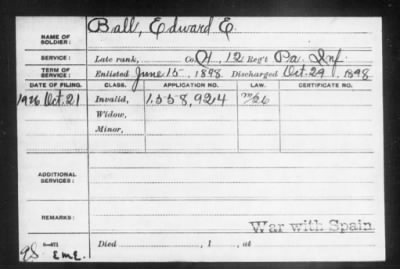 NAME OF SOLDIER: Ball, Edward E.
SERVICE: Late rank, Co. H, 12 Reg't Pa. Inf.
TERM OF SERVICE: Enlisted June 15, 1898 Discharged Oct. 29, 1898
DATE OF FILING. CLASS. APPLICATION NO. LAW. CERTIFICATE NO.
1926 Oct. 21 Invalid, 1558,924
Widow,
Minor,
ADDITIONAL SERVICES:
REMARKS: War with Spain
Died , 1 , at
E.M.E.